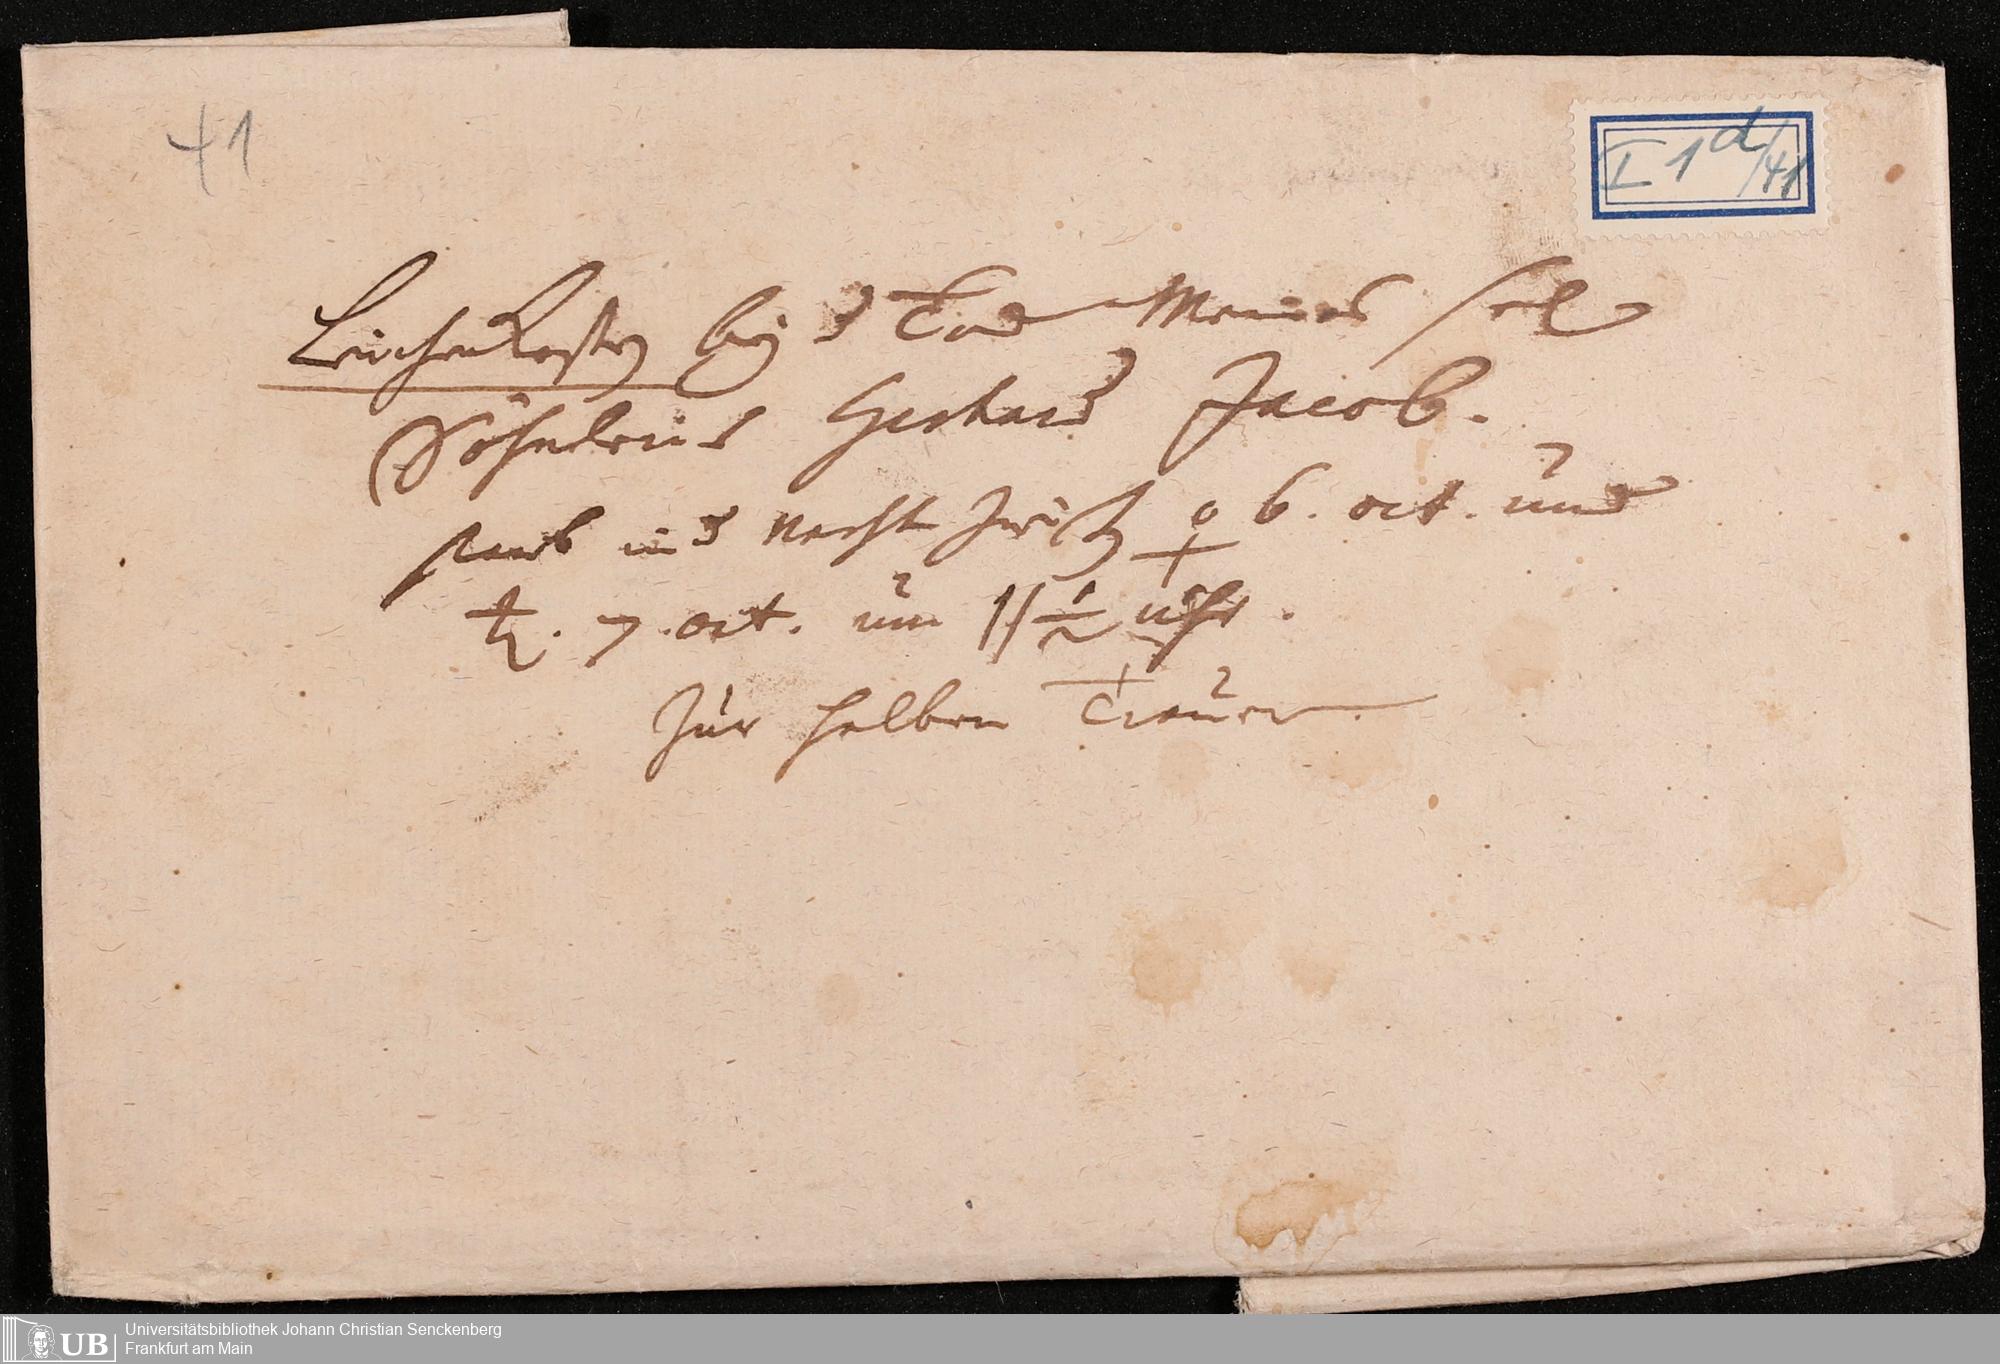 41
I 1 d/41
Leichen Kosten bey d Tod Meines sel
Söhnleins Gerhard Jacob.
starb in d Nacht zwisch ♀ 6. oct. und
♄. 7. oct. um 11 1/2 uhr.
Zur halben Trauer.
UB
Universitätsbibliothek Johann Christian Senckenberg
Frankfurt am Main